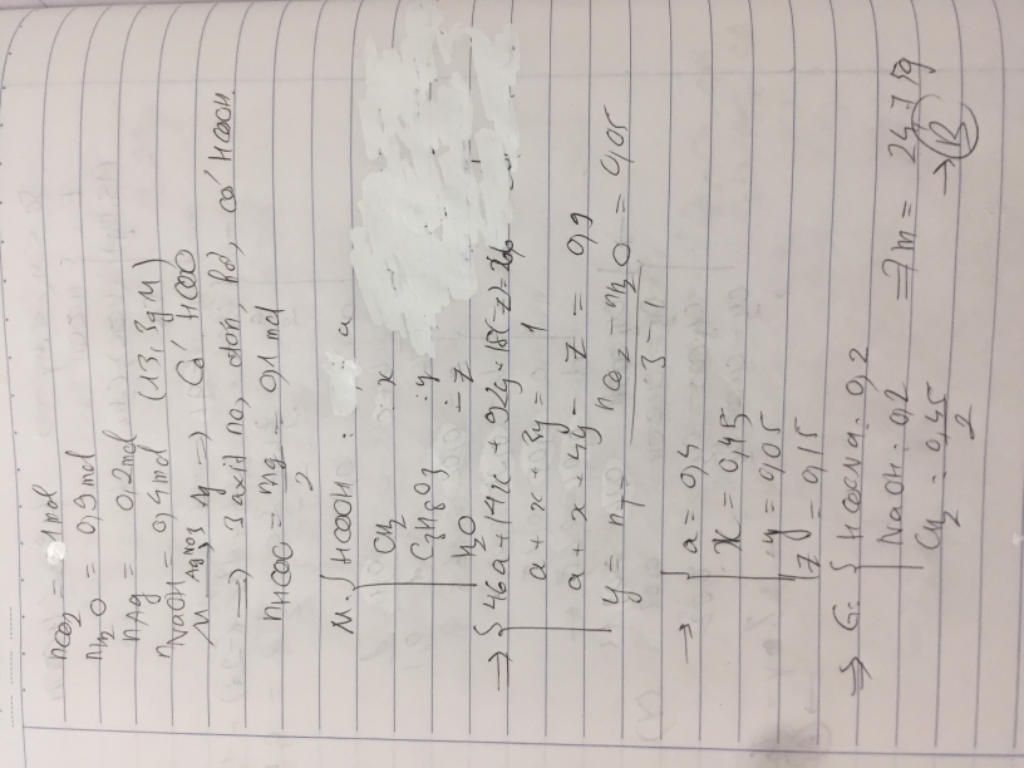 nCO2 = 1 mol
nH2O = 0,9 mol
nAg = 0,2 mol
nNaOH = 0,4 mol (13,3g M)
M AgNO3 Ag → Có HCOO
⇒ 3 axit no, đơn, hở, có HCOOH
nHCOO = nAg / 2 = 0,1 mol
M: { HCOOH : a
CH2 : x
C3H8O3 : y
H2O : -z
⇒ { 46a + 14x + 92y - 18z =
a + x + 3y = 1
a + x + 4y - z = 0,9
y = nT = nCO2 - nH2O / 3 - 1 = 0,05
→ { a = 0,4
x = 0,45
y = 0,05
z = 0,15
⇒ G: { HCOONa : 0,2
NaOH : 0,2 ⇒ m = 24,75g
CH2 : 0,45 / 2 → B